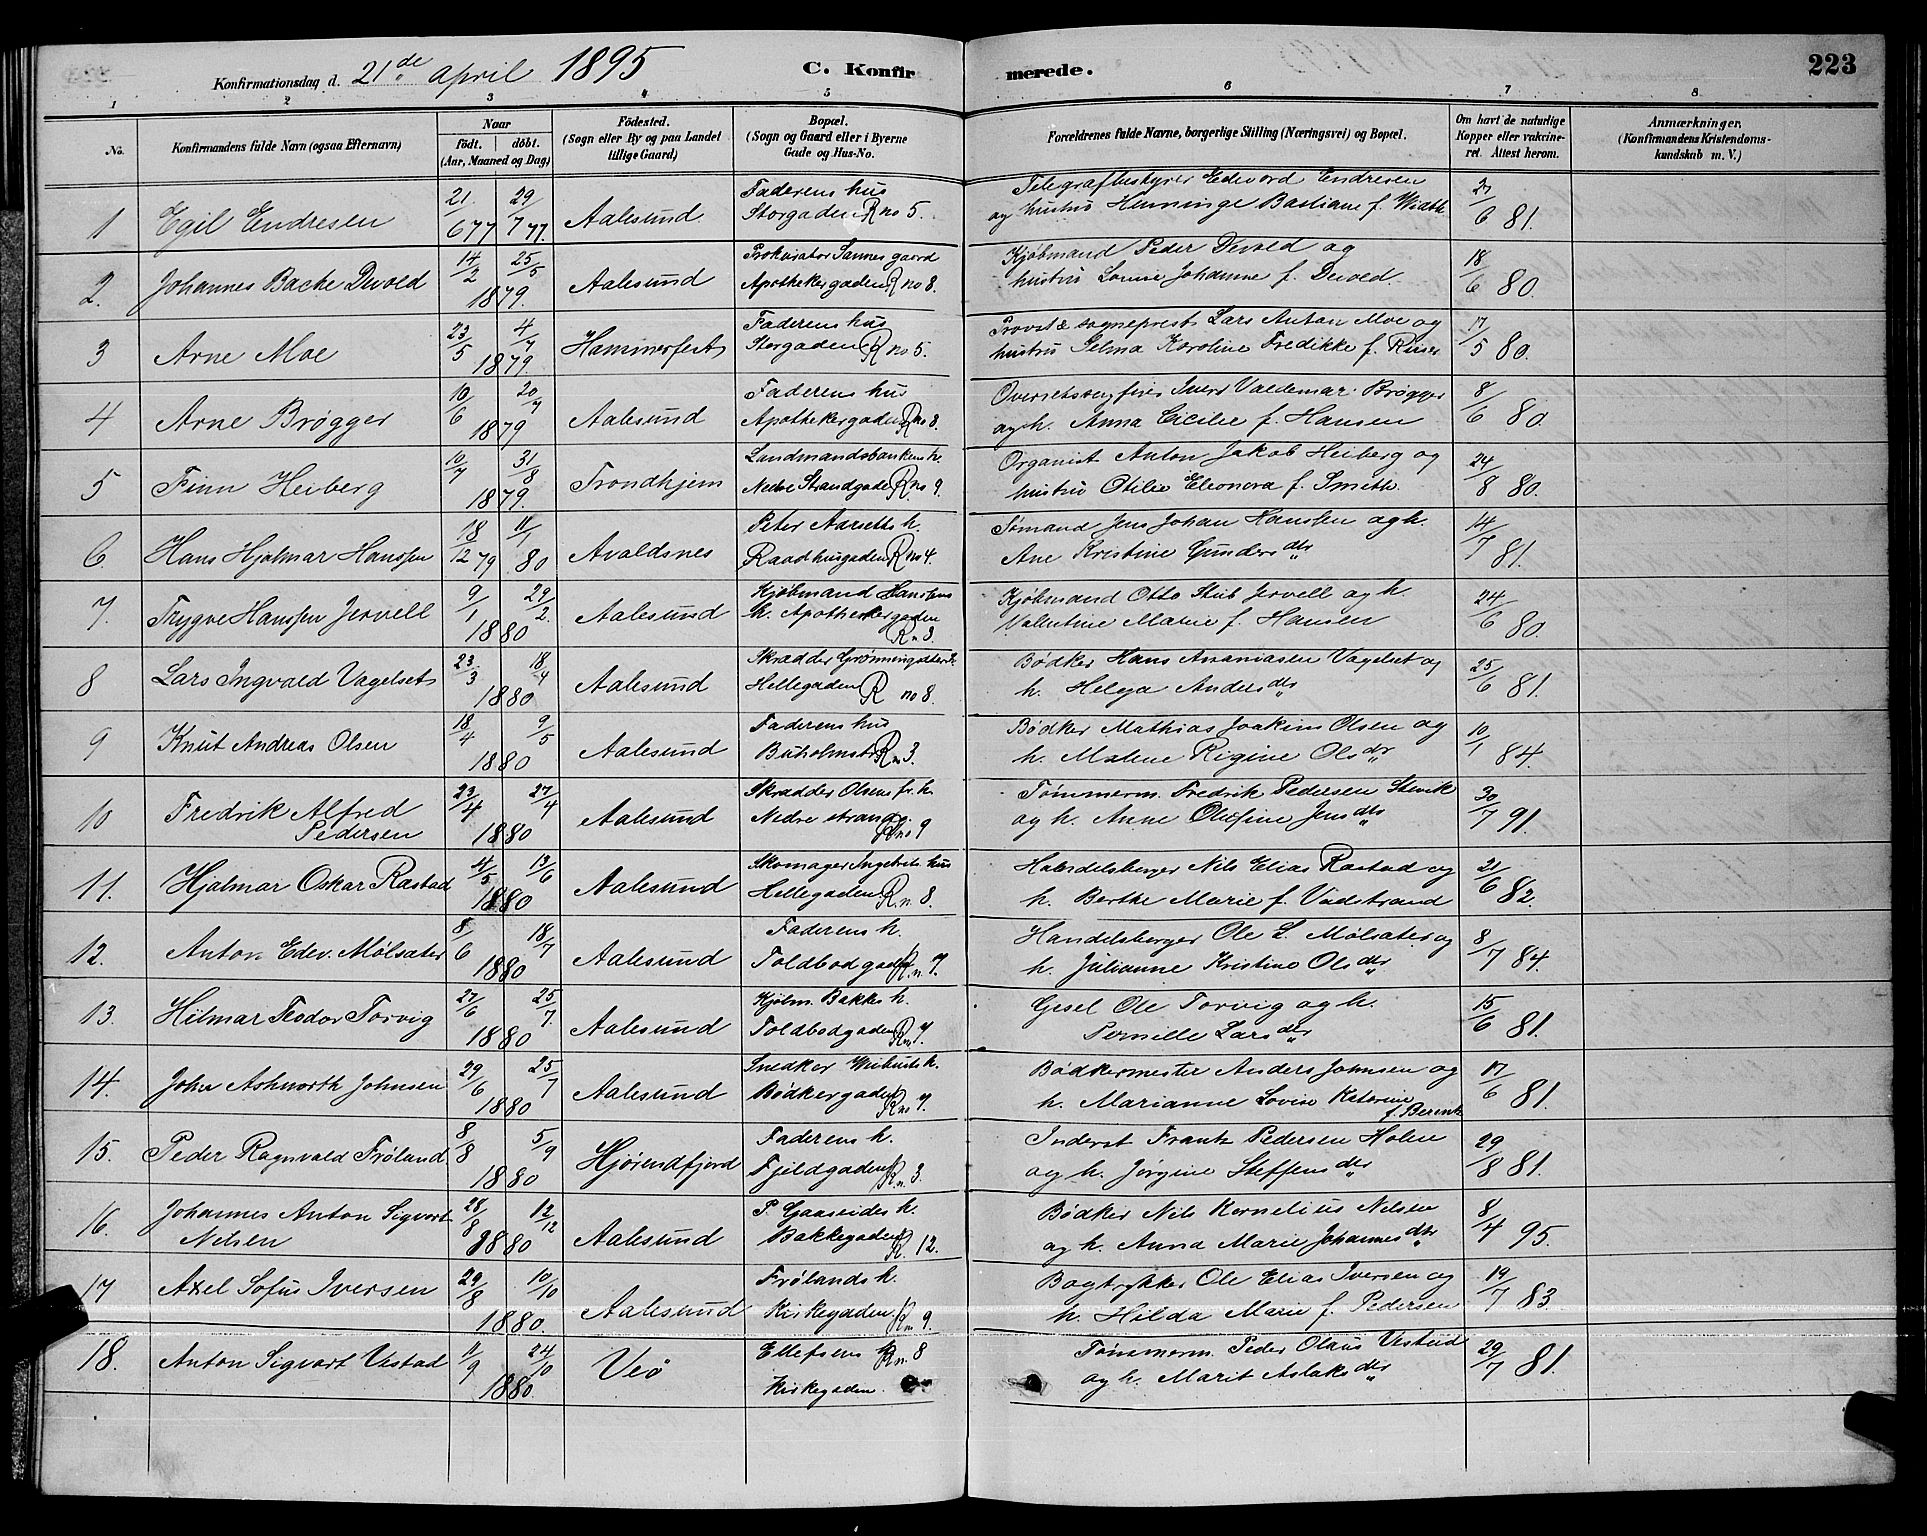 Konfirmationsdag d. 21de april 1895 C. Konfirmerede. 223
1 2 3 4 5 6 7 8
No. Konfirmandens fulde Navn (ogsaa Efternavn) Naar födt. döbt. (Aar, Maaned og Dag) Födested. (Sogn eller By og paa Landet tillige Gaard) Bopæl. (Sogn og Gaard eller i Byerne Gade og Hus-No. Forældrenes fulde Navne, borgerlige Stilling (Næringsvei) og Bopæl. Om havt de naturlige Kopper eller vakcineret. Attest herom. Anmærkninger, (Konfirmandens Kristendomskundskab m. V.)
1 Egil Endresen 21/6 77 29/7 77. Aalesund Faderens hus Storgaden R no 5. Telegrafbestyrer Edvard Endresen og hustru Henninge Bastiane f. Wirth 21/6 81.
2. Johannes Backe Devold 14/2 25/5 1879. Aalesund Prokurator Sannes gaard Apothekergaden R no 8. Kjøbmand Peder Devold og hustru Lovise Johanne f. Devold. 18/6 80.
3 Arne Moe 23/5 4/7 1879. Hammerfest Faderens hus Storgaden R no 5. Provst & sogneprest Lars Anton Moe og hustru Selma Karoline Fredikke f. 17/5 80.
4 Arne Brøgger 10/6 20/7 1879 Aalesund Faderens hus Apothekergaden R no 8. Overretssagfører Iver Valdemar Brøgger og h. Anna Cicilie f. Hansen 8/6 80.
5 Finn Heiberg 10/7 31/8 1879. Trondhjem Landmandsbankens h. Nedre Strandgade R no 9. Organist Anton Jakob Heiberg og hustru Otilie Eleonora f. Smith. 24/8 80.
6. Hans Hjalmar Hanssen 18/12 79 11/1 80 Avaldsnes Peter Aarseths h. Raadhusgaden R no 4. Sømand Jens Johan Hanssen og h. Ane Kristine Gundersdtr 14/7 81.
7. Trygve Hanssen Jervell 9/1 29/2. 1880 Aalesund Kjøbmand Hanssens h. Apothekergaden R n 3. Kjøbmand Otto Stub Jervell og h. Valentine Marie f. Hansen 24/6 80.
8 Lars Ingvald Vagelset 23/3 18/4 1880 Aalesund Skrædder Hellegaden R no 8. Bødker Hans Ananiasen Vagelset og h. Helga Andersdtr 25/6 81.
9 Knut Andreas Olsen 18/4 9/5 1880 Aalesund Faderens hus Buholmstr. R n 3. Bødker Mathias Joakim Olsen og h. Malene Rigine Olsdtr 10/1 84.
10 Fredrik Alfred Pedersen 23/4 27/4 1880 Aalesund Skrædder Olsens h. Nedre strandg. R no 9 Tømmerm. Fredrik Pedersen Stevik og h. Anne Olefine Jensdtr 30/7 91.
11. Hjalmar Oskar Rastad 4/5 13/6 1880 Aalesund Skomager Ingebrets hus Hellegaden R. n. 8. Handelsberger Nils Elias Rastad og h. Berthe Marie f. Vadstrand 21/6 82.
12. Anton Edv. Mølsater 8/6 18/7 1880 Aalesund Faderens h. Toldbodgaden R. n. 7. Handelsberger Ole L. Mølsater og h. Julianne Kristine Olsdtr 8/7 84.
13. Hilmar Teodor Torvig 27/6 25/7. 1880 Aalesund Kjøbm. Bakkes h. Toldbodgaden R n 7. Gesel Ole Torvig og h. Pernille Larsdtr 15/6 81.
14. John Ashworth Johnsen 29/6 25/7 1880 Aalesund Snedker h. Bødkergaden R no 7. Bødkermester Anders Johnsen og h. Marianne Lovise Katerine f. 17/6 81.
15. Peder Ragnvald Frøland 8/8 5/9 1880 Hjørendfjord Faderens h. Fjeldgaden R. n. 3. Inderst Frantz Pedersen Holen og h. Jørgine Steffensdtr 29/8 81.
16. Johannes Anton Sigvart Nelsen 28/8 12/12 1880 Aalesund P. Gaaseides h. Bakkegaden R. 12. Bødker Nils Kornelius Nelsen og h. Anna Marie Johannesdtr 8/4 95.
17 Axel Sofus Iversen 29/8 10/10 1880. Aalesund Frølands h. Kirkegaden R n 9. Bogtrykker Ole Elias Iversen og h. Hilda Marie f. Pedersen 19/7 83.
18. Anton Sigvart Vestad 11/9 24/10 1880. Veø Ellefsens h R n. 8 Kirkegaden. Tømmerm. Peder Olaus Vestad og h. Marit Aslaksdtr 29/7 81.